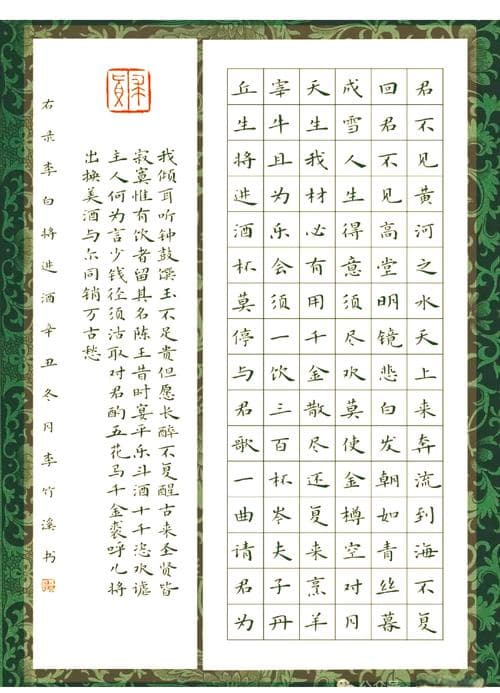 君不见黄河之水天上来奔流到海不复
回君不见高堂明镜悲白发朝如青丝暮
成雪人生得意须尽欢莫使金樽空对月
天生我材必有用千金散尽还复来烹羊
宰牛且为乐会须一饮三百杯岑夫子丹
丘生将进酒杯莫停与君歌一曲请君为
我倾耳听钟鼓馔玉不足贵但愿长醉不复醒古来圣贤皆
寂寞惟有饮者留其名陈王昔时宴平乐斗酒十千恣欢谑
主人何为言少钱径须沽取对君酌五花马千金裘呼儿将
出换美酒与尔同销万古愁
右录李白将进酒辛丑冬月李竹溪书